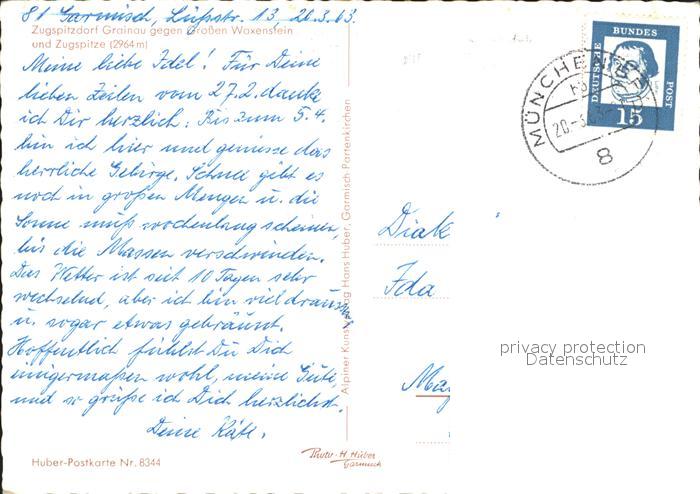 81 Garmisch, Lüßstr. 13, 20.3.63.
Zugspitzdorf Grainau gegen Großen Waxenstein
und Zugspitze (2964m)
Meine liebe Idel! Für Deine
lieben Zeilen vom 27.2. danke
ich Dir herzlich. Bis zum 5.4.
bin ich hier und geniesse das
herrliche Gebirge. Schnee gibt es
noch in großen Mengen u. die
Sonne muß wochenlang scheinen,
bis die Massen verschwinden.
Das Wetter ist seit 10 Tagen sehr
wechselnd, aber ich bin viel draussen
u. sogar etwas gebräunt.
Hoffentlich fühlst Du Dich
einigermaßen wohl, meine Gute,
und so grüße ich Dich herzlichst.
Deine Käte.
Huber-Postkarte Nr. 8344
Photo-H. Huber
Garmisch
Alpiner Kunstverlag Hans Huber, Garmisch Partenkirchen
DEUTSCHE BUNDESPOST
15
MÜNCHEN
20.-3.63-
8
Diak
Ida
privacy protection
Datenschutz